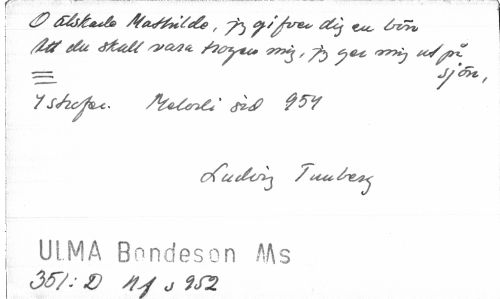 O älskade Mathilde, jg gifver dig en bön
Att du skall vara trogen mig, jg ger mig ut på
sjön,
4 strofer. Melodi sid 954
Ludvig Tunberg
ULMA Bondeson Ms
351:D Nf s 952